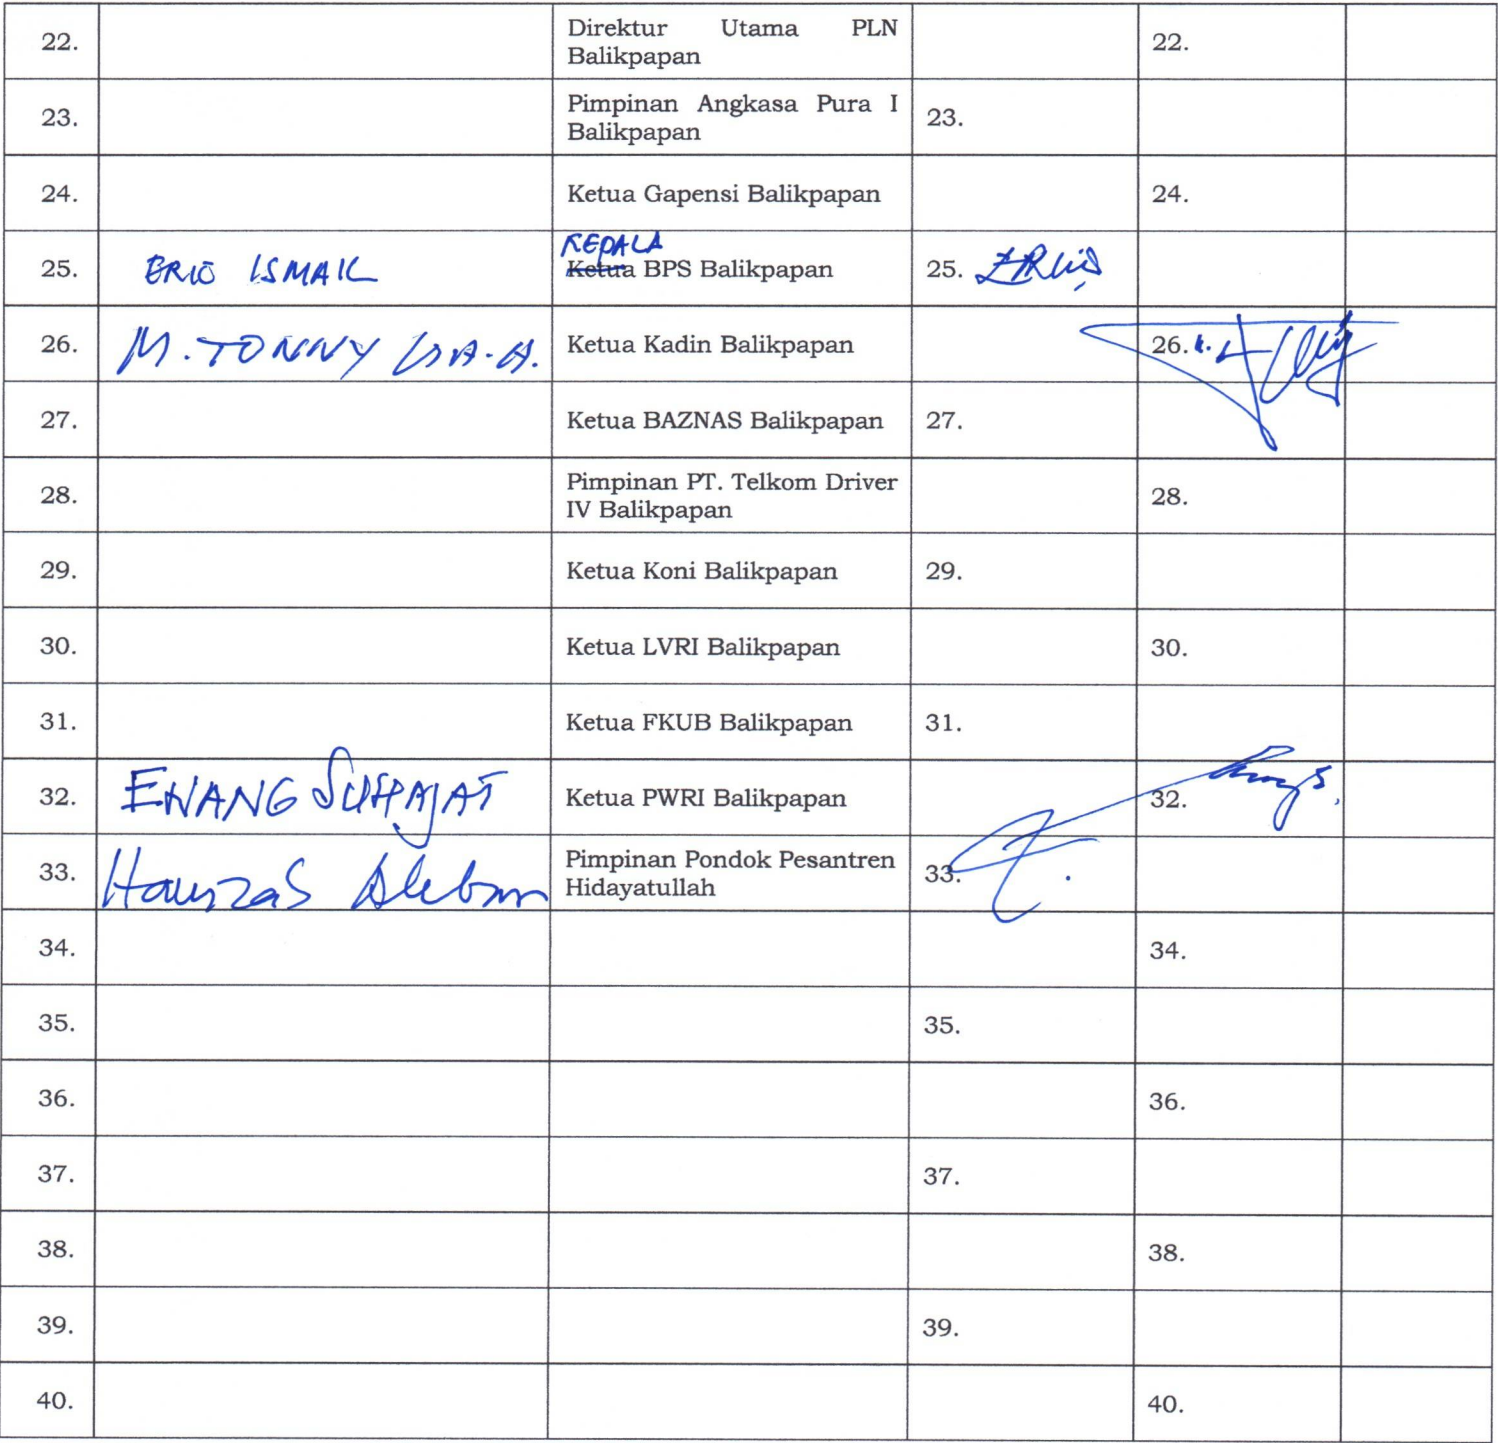 22. Direktur Utama PLN 22.
Balikpapan
23. Pimpinan Angkasa Pura I 23.
Balikpapan
24. Ketua Gapensi Balikpapan 24.
KEPALA
25. ERIC ISMAIL Ketua BPS Balikpapan 25.
26. M. TONNY Ketua Kadin Balikpapan 26.
27. Ketua BAZNAS Balikpapan 27.
28. Pimpinan PT. Telkom Driver 28.
IV Balikpapan
29. Ketua Koni Balikpapan 29.
30. Ketua LVRI Balikpapan 30.
31. Ketua FKUB Balikpapan 31.
32. ENANG Ketua PWRI Balikpapan 32.
33. Pimpinan Pondok Pesantren 33.
Hidayatullah
34. 34.
35. 35.
36. 36.
37. 37.
38. 38.
39. 39.
40. 40.